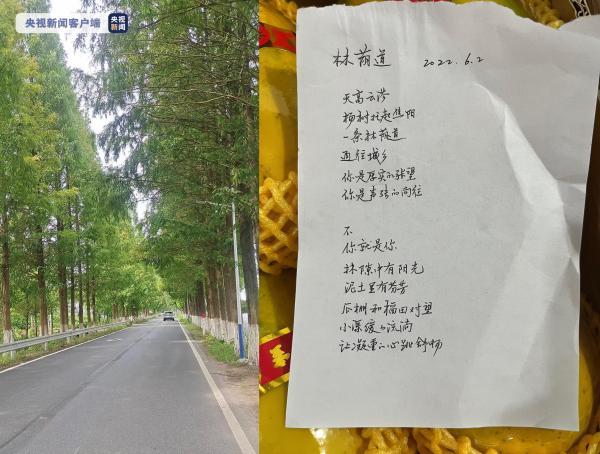 央视新闻客户端
CCTV
央视新闻
林荫道 2022.6.2
天高云淡
杨树撑起焦阳
一条林荫道
通往城乡
你是厚实的张望
你是声弦的向往
不
你就是你
林隙中有阳光
泥土里有芬芳
瓜棚和稻田对望
小溪缓缓流淌
让凝重的心跳舒畅